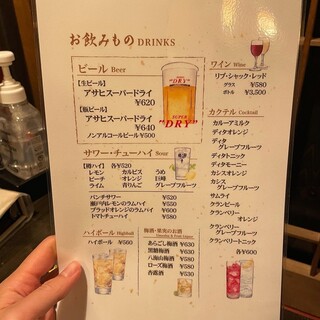 お飲みもの DRINKS
ビール Beer
【生ビール】
アサヒスーパードライ
¥620
【瓶ビール】
アサヒスーパードライ
¥640
ノンアルコールビール ¥500
"DRY"
SUPER
"DRY"
サワー・チューハイ Sour
【樽ハイ】 各¥520
レモン カルピス うめ
ピーチ オレンジ 巨峰
ライム 青りんご グレープフルーツ
パンチサワー ¥520
瀬戸内レモンのラムハイ ¥580
ブラッドオレンジのラムハイ ¥580
トマトチューハイ ¥580
ハイボール Highball
ハイボール ¥560
梅酒・果実のお酒
あらごし梅酒 ¥630
黒糖梅酒 ¥630
八海山梅酒 ¥580
ローズ梅酒 ¥580
杏露酒 ¥530
ワイン Wine
リブ・シャック・レッド
グラス ¥580
ボトル ¥3,500
カクテル Cocktail
カルーアミルク
ディタオレンジ
ディタ
グレープフルーツ
ディタトニック
ディタモーニー
カシスオレンジ
カシス
グレープフルーツ
サムライ
クランビール
クランベリー
オレンジ
クランベリー
グレープフルーツ
クランベリートニック
各¥600